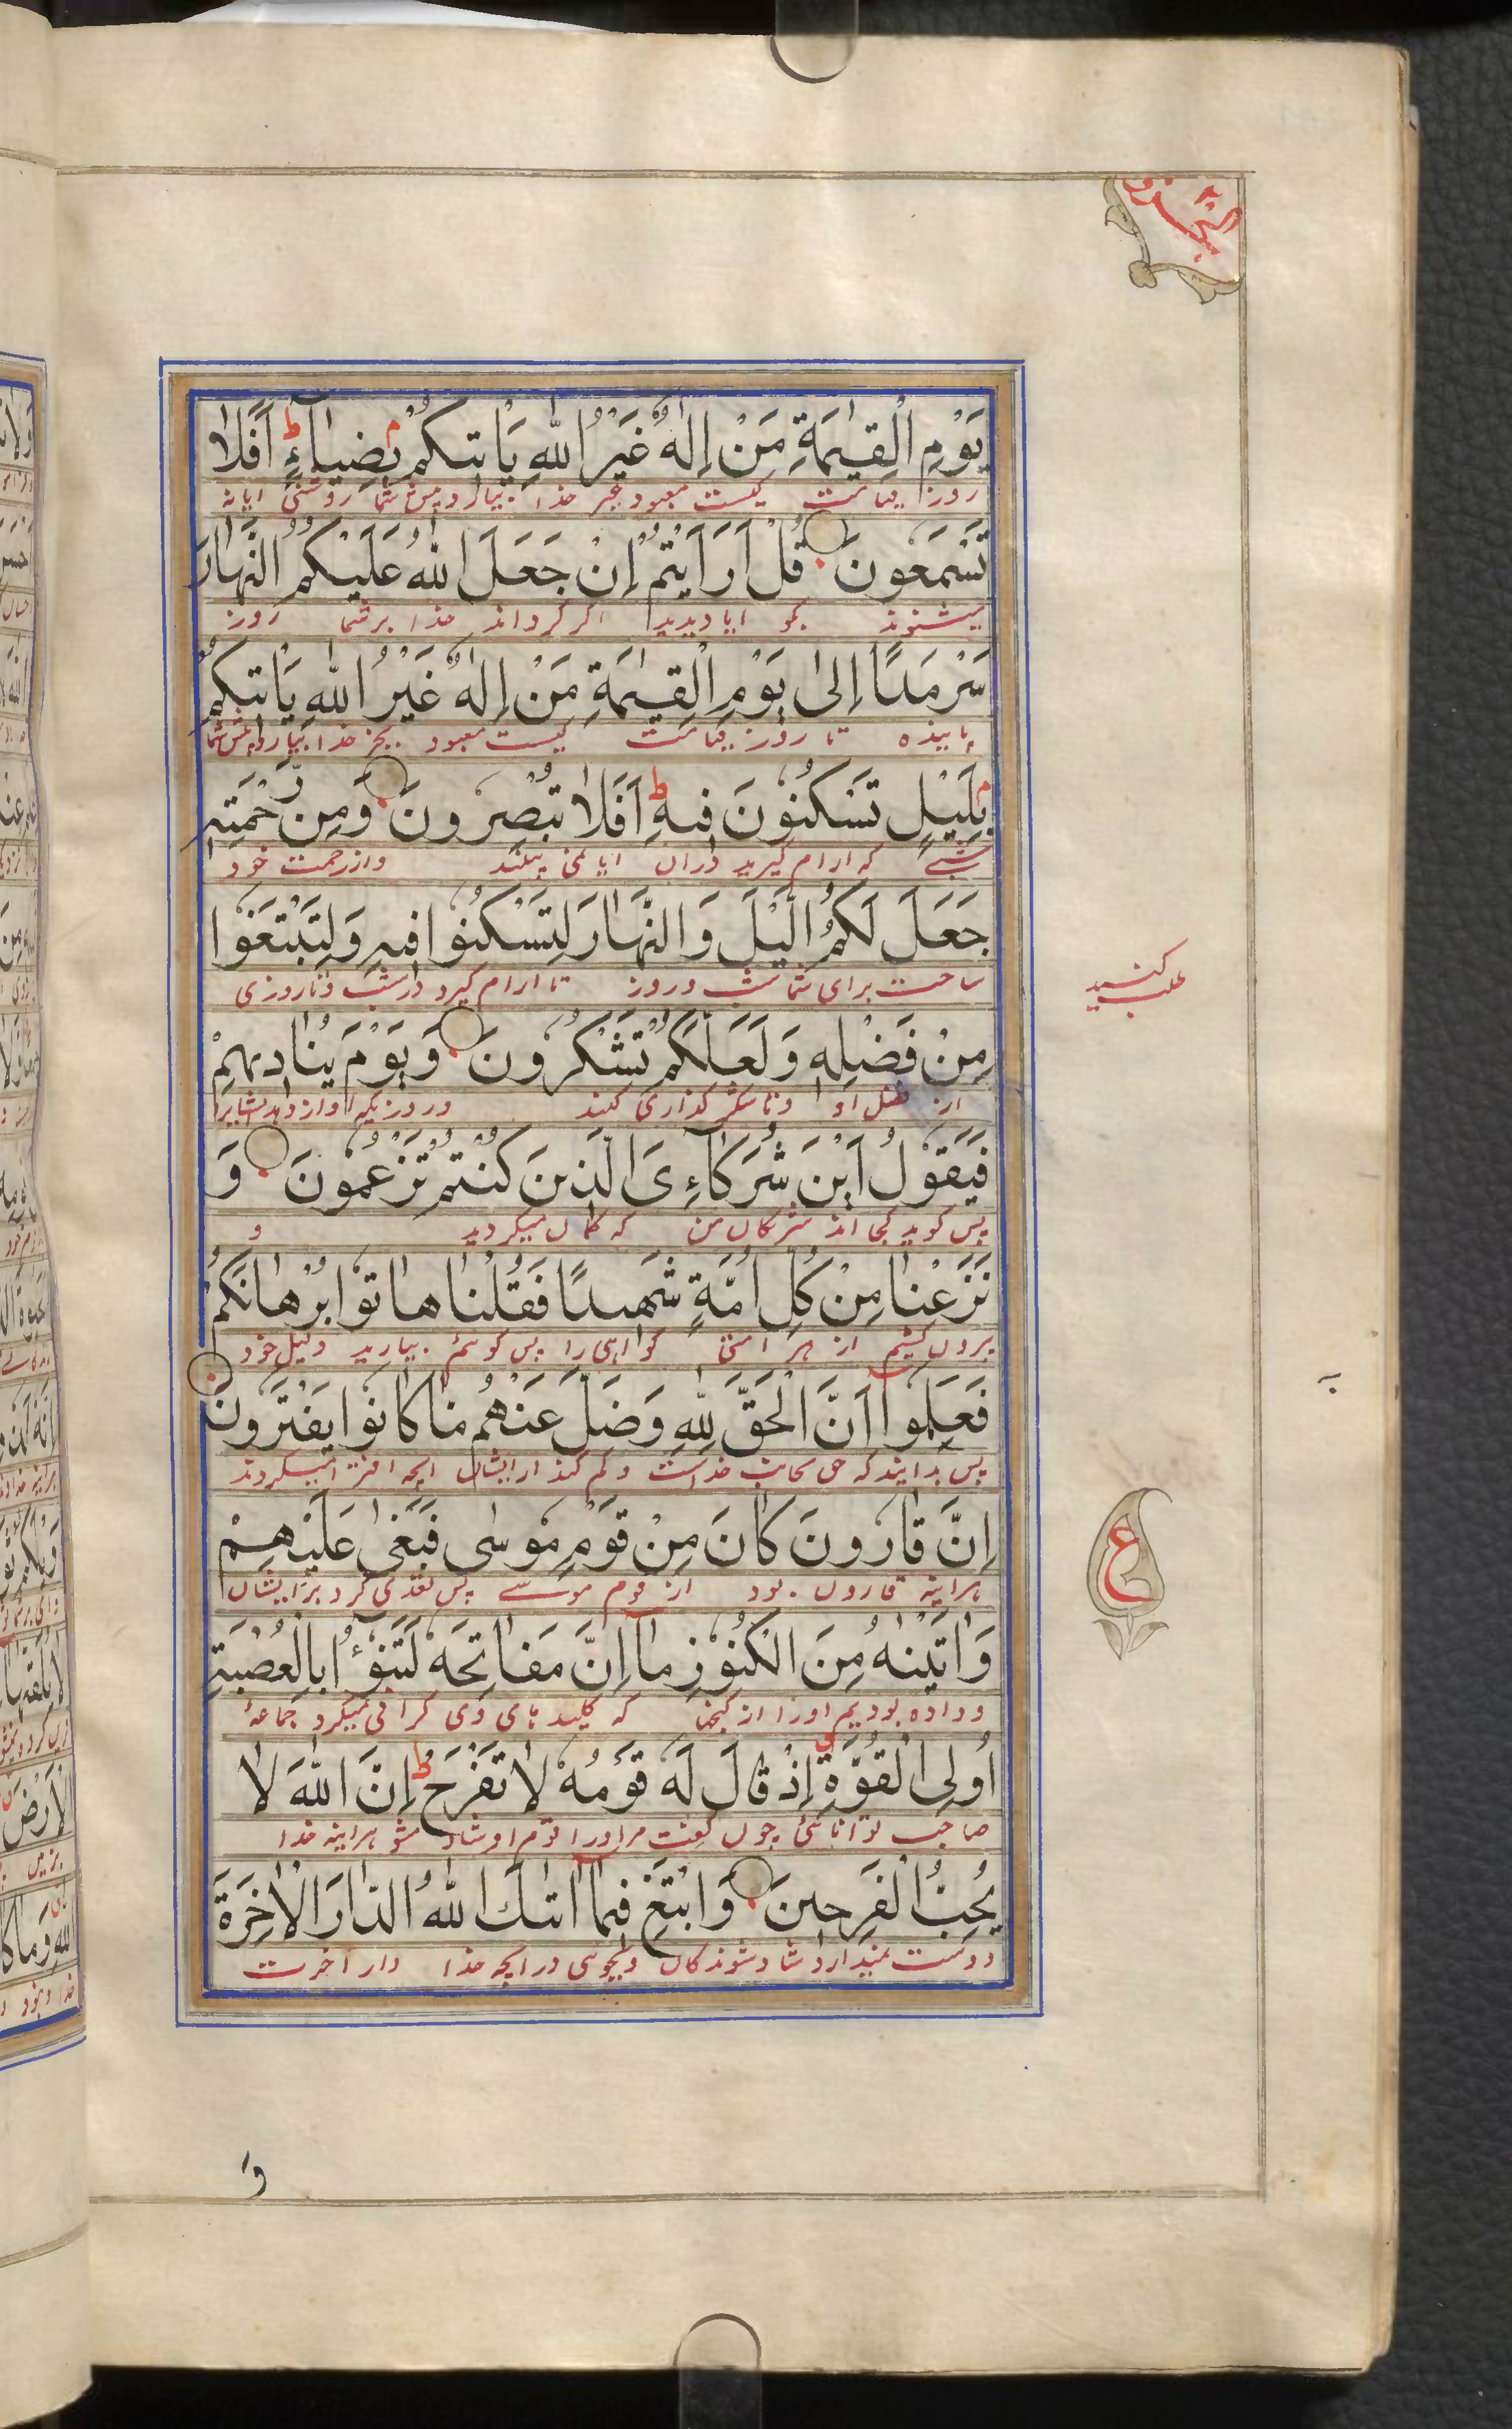 يَوْمِ الْقِيٰمَةِ مَنْ إِلٰهٌ غَيْرُ اللّٰهِ يَأْتِيكُمْ بِضِيَآءٍ ط أَفَلَا
روز قیامت کیست معبود غیر خدا بیارد پیش شما روشنی ایا نه
تَسْمَعُونَ قُلْ أَرَأَيْتُمْ إِنْ جَعَلَ اللّٰهُ عَلَيْكُمُ النَّهَارَ
میشنوند بگو ایا دیدید اگر گرداند خدا بر شما روز
سَرْمَدًا إِلىٰ يَوْمِ الْقِيٰمَةِ مَنْ إِلٰهٌ غَيْرُ اللّٰهِ يَأْتِيكُمْ
پاینده تا روز قیامت کیست معبود بجز خدا بیارد پیش شما
بِلَيْلٍ تَسْكُنُونَ فِيهِ ط أَفَلَا تُبْصِرُونَ وَمِنْ رَّحْمَتِهِ
شبے که ارام گیرید دران ایا نمی بینند واز رحمت خود
جَعَلَ لَكُمُ الَّيْلَ وَالنَّهَارَ لِتَسْكُنُوا فِيهِ وَلِتَبْتَغُوا
ساخت برای شما شب و روز تا ارام گیرد در شب و تا روزی
طلب کنید
مِنْ فَضْلِهِ وَلَعَلَّكُمْ تَشْكُرُونَ وَيَوْمَ يُنَادِيهِمْ
از فضل او و تا شکر گذاری کنند و روزیکه اواز دهد ایشانرا
فَيَقُولُ أَيْنَ شُرَكَآءِىَ الَّذِينَ كُنْتُمْ تَزْعُمُونَ وَ
پس گوید کجا اند شریکان من که گمان میکردید و
نَزَعْنَا مِنْ كُلِّ أُمَّةٍ شَهِيدًا فَقُلْنَا هَاتُوا بُرْهَانَكُمْ
برون کشیم از هر امتی گواهی را پس گوئیم بیارید دلیل خود
فَعَلِمُوا أَنَّ الْحَقَّ لِلّٰهِ وَضَلَّ عَنْهُمْ مَا كَانُوا يَفْتَرُونَ
پس بدانید که حق بجانب خداست و گم کند از ایشان انچه افترا میکردند
إِنَّ قَارُونَ كَانَ مِنْ قَوْمِ مُوسٰى فَبَغٰى عَلَيْهِمْ
هراینه قارون بود از قوم موسے پس تعدی کرد بر ایشان
ع
وَاٰتَيْنٰهُ مِنَ الْكُنُوزِ مَآ إِنَّ مَفَاتِحَهُ لَتَنُوٓأُ بِالْعُصْبَةِ
و داده بودیم اورا از گنجها که کلید های وی گرانی میکرد جماعۀ
أُولِى الْقُوَّةِ إِذْ قَالَ لَهُ قَوْمُهُ لَا تَفْرَحْ ط إِنَّ اللّٰهَ لَا
صاحب توانائی چون گفت مر اورا قوم او شاد مشو هراینه خدا
يُحِبُّ الْفَرِحِينَ وَابْتَغِ فِيمَآ اٰتٰىكَ اللّٰهُ الدَّارَ الْاٰخِرَةَ
دوست نمیدارد شاد شوندکان و بجوئی در انچه خدا دار اخرت
وَ